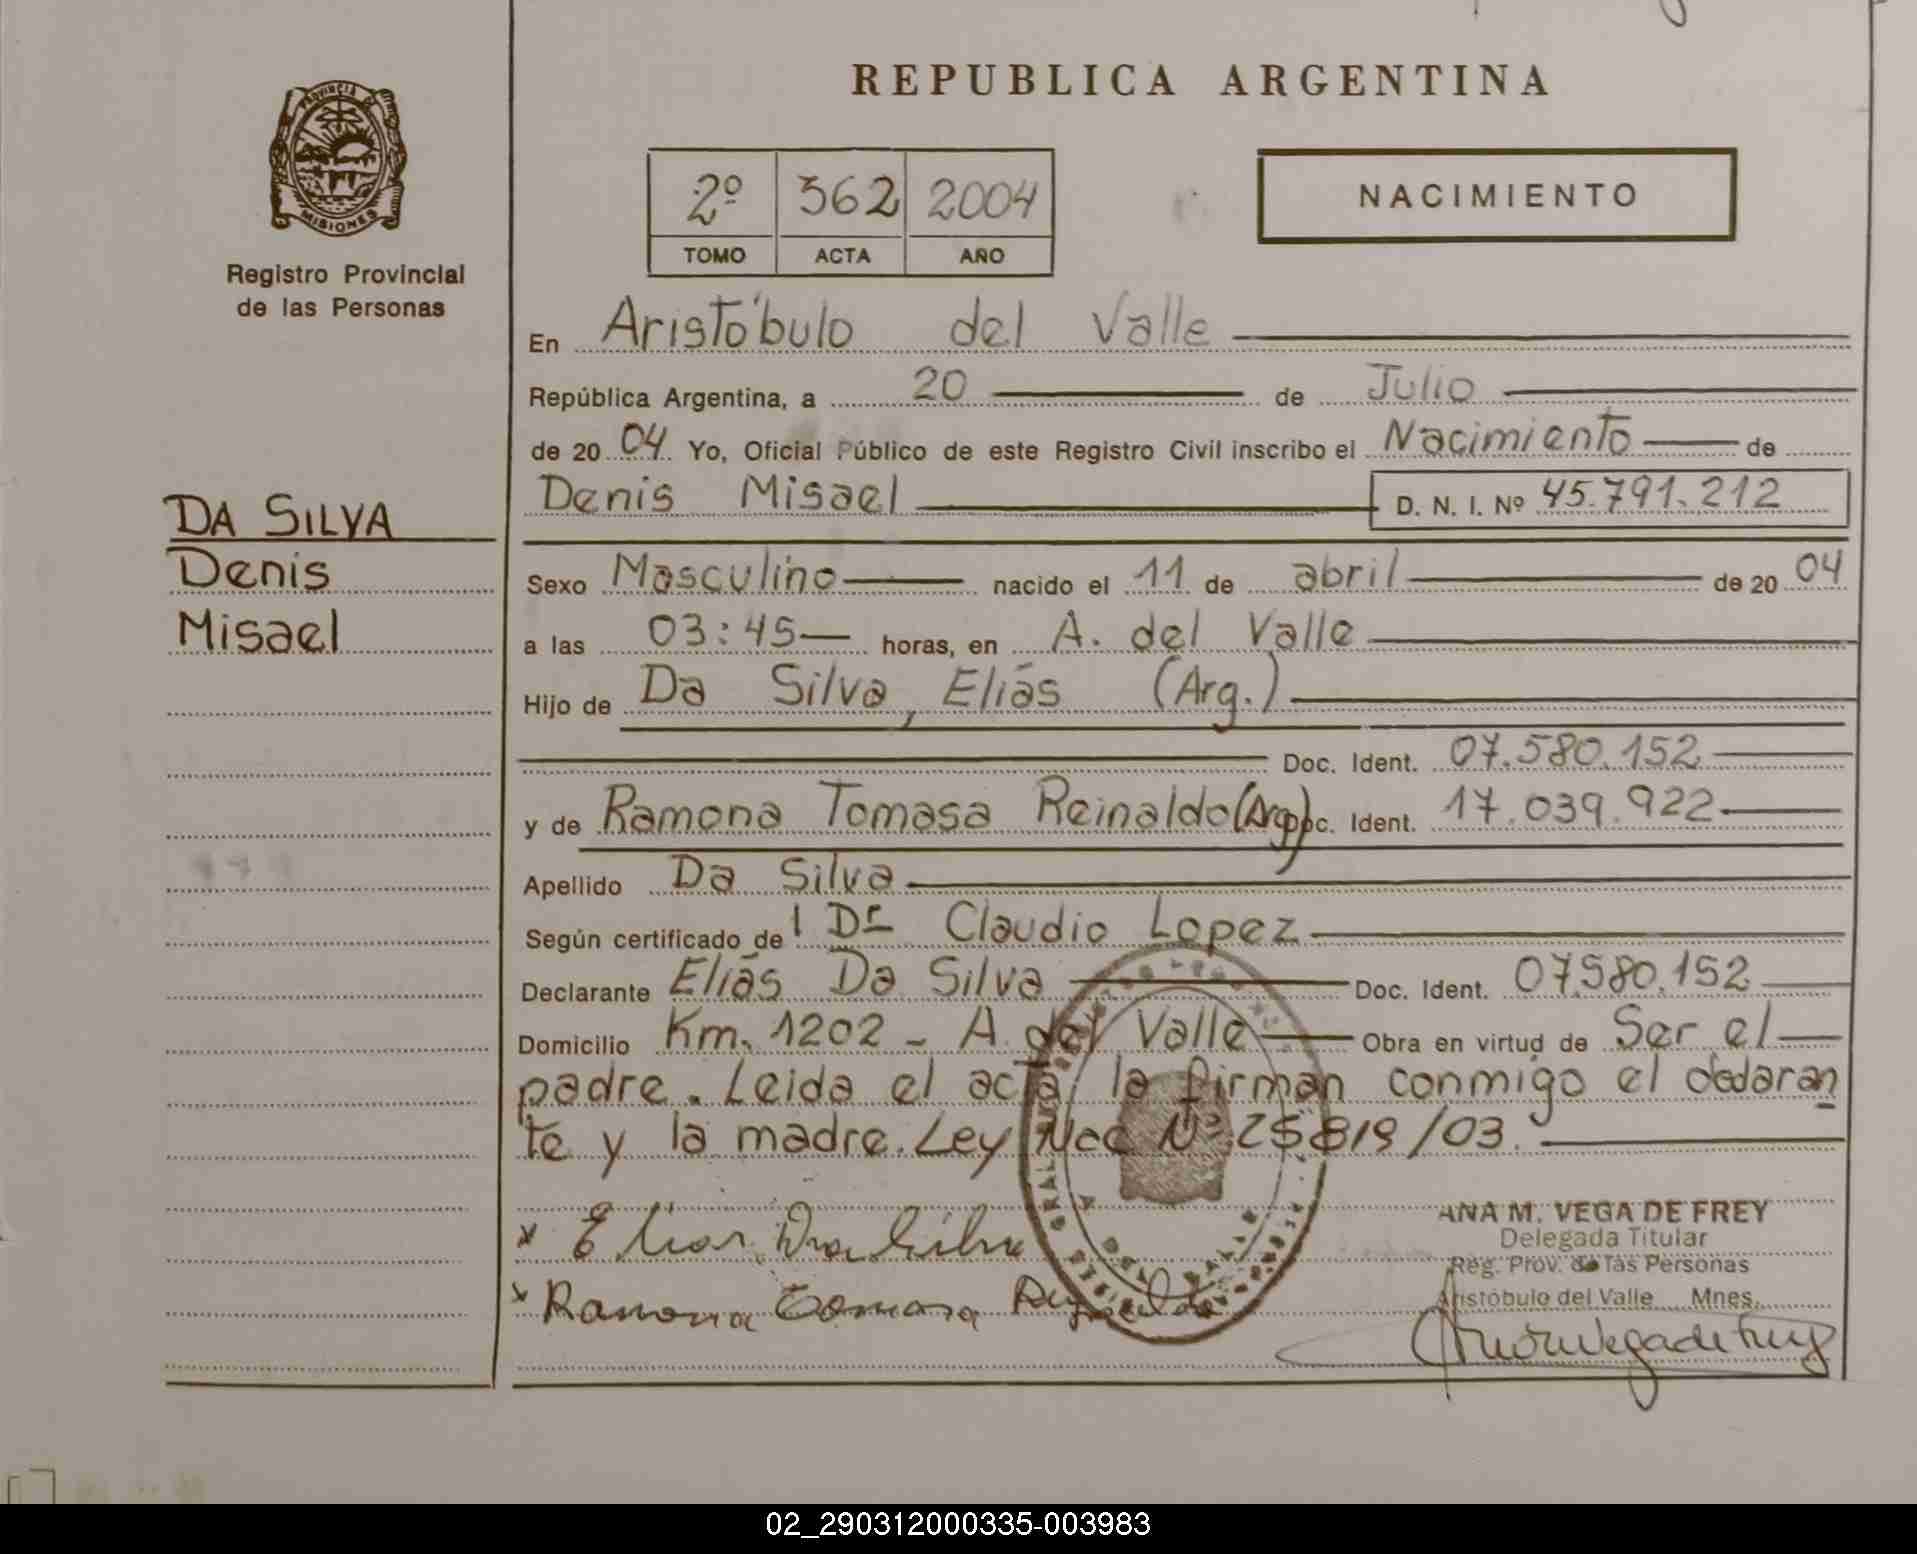 REPUBLICA ARGENTINA
PROVINCIA DE
MISIONES
Registro Provincial
de las Personas
2º 362 2004
TOMO ACTA AÑO
NACIMIENTO
DA SILVA
Denis
Misael
En Aristóbulo del Valle
República Argentina, a 20 de Julio
de 2004 Yo, Oficial Público de este Registro Civil inscribo el Nacimiento de
Denis Misael D. N. I. Nº 45.791.212
Sexo Masculino nacido el 11 de abril de 2004
a las 03:45 horas, en A. del Valle
Hijo de Da Silva, Eliás (Arg.)
Doc. Ident. 07.580.152
y de Ramona Tomasa Reinaldo (Arg) Doc. Ident. 17.039.922
Apellido Da Silva
Según certificado de Dr Claudio Lopez
Declarante Eliás Da Silva Doc. Ident. 07.580.152
Domicilio Km. 1202 - A. del Valle Obra en virtud de Ser el
padre. Leida el acta, la firman conmigo el declaran
te y la madre. Ley Nac Nº 25819/03.
x Elias Da Silva
x Ramona Tomasa
ANA M. VEGA DE FREY
Delegada Titular
Reg. Prov. de las Personas
Aristóbulo del Valle Mnes.
02_290312000335-003983